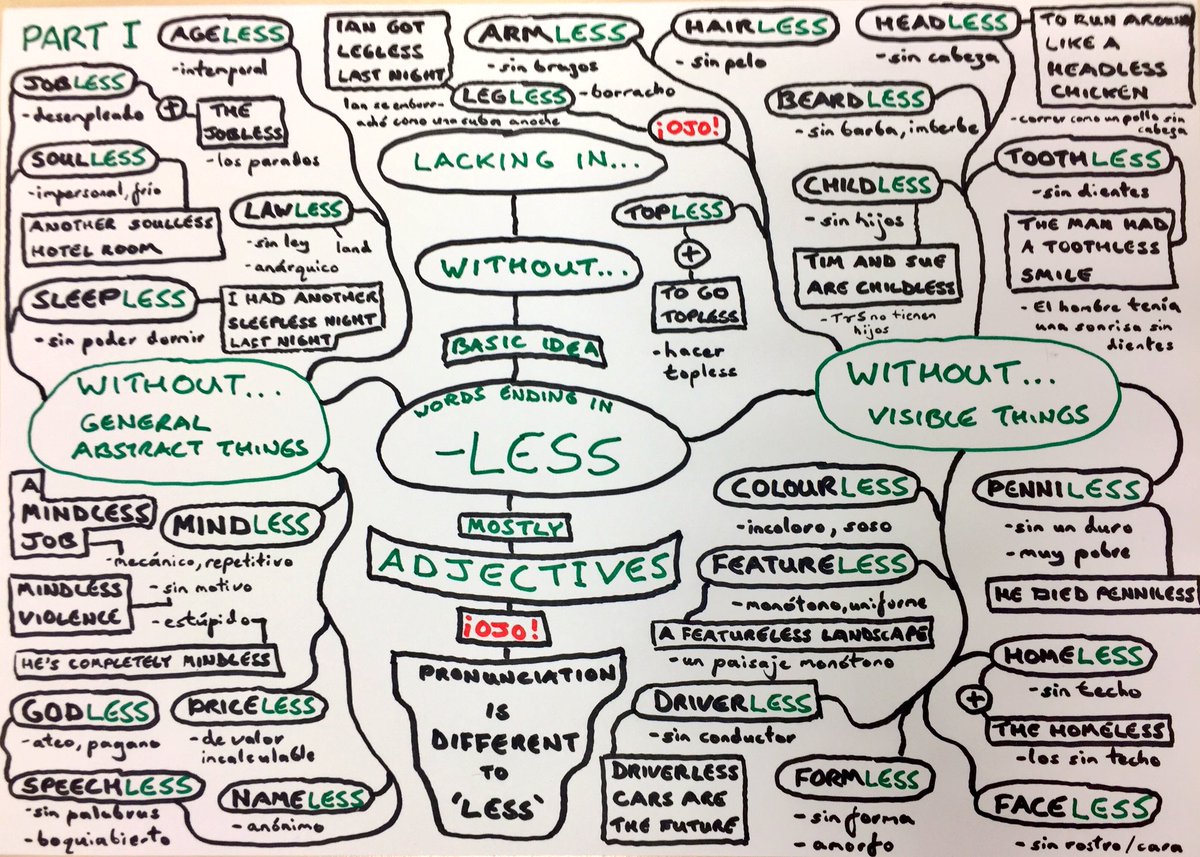 PART I
AGELESS
-intemporal
JOBLESS
-desempleado
+
THE
JOBLESS
-los parados
SOULLESS
-impersonal, frío
ANOTHER SOULLESS
HOTEL ROOM
LAWLESS
-sin ley
land
-anárquico
SLEEPLESS
-sin poder dormir
I HAD ANOTHER
SLEEPLESS NIGHT
LAST NIGHT
WITHOUT...
GENERAL
ABSTRACT THINGS
IAN GOT
LEGLESS
LAST NIGHT
Ian se emborr-
achó como una cuba anoche
ARMLESS
-sin brazos
LEGLESS
-borracho
¡OJO!
LACKING IN...
WITHOUT...
BASIC IDEA
WORDS ENDING IN
-LESS
MOSTLY
ADJECTIVES
¡OJO!
PRONUNCIATION
IS
DIFFERENT
TO
'LESS'
HAIRLESS
-sin pelo
HEADLESS
-sin cabeza
TO RUN AROUND
LIKE A
HEADLESS
CHICKEN
-correr como un pollo sin
cabeza
BEARDLESS
-sin barba, imberbe
TOPLESS
+
TO GO
TOPLESS
-hacer
topless
CHILDLESS
-sin hijos
TIM AND SUE
ARE CHILDLESS
-T y S no tienen
hijos
TOOTHLESS
-sin dientes
THE MAN HAD
A TOOTHLESS
SMILE
-El hombre tenía
una sonrisa sin
dientes
WITHOUT...
VISIBLE THINGS
A
MINDLESS
JOB
MINDLESS
-mecánico, repetitivo
MINDLESS
VIOLENCE
-sin motivo
-estúpido
HE'S COMPLETELY MINDLESS
GODLESS
-ateo, pagano
PRICELESS
-de valor
incalculable
SPEECHLESS
-sin palabras
-boquiabierto
NAMELESS
-anónimo
COLOURLESS
-incoloro, soso
FEATURELESS
-monótono, uniforme
A FEATURELESS LANDSCAPE
-un paisaje monótono
DRIVERLESS
-sin conductor
DRIVERLESS
CARS ARE
THE FUTURE
FORMLESS
-sin forma
-amorfo
PENNILESS
-sin un duro
-muy pobre
HE DIED PENNILESS
HOMELESS
-sin techo
+
THE HOMELESS
-los sin techo
FACELESS
-sin rostro/cara